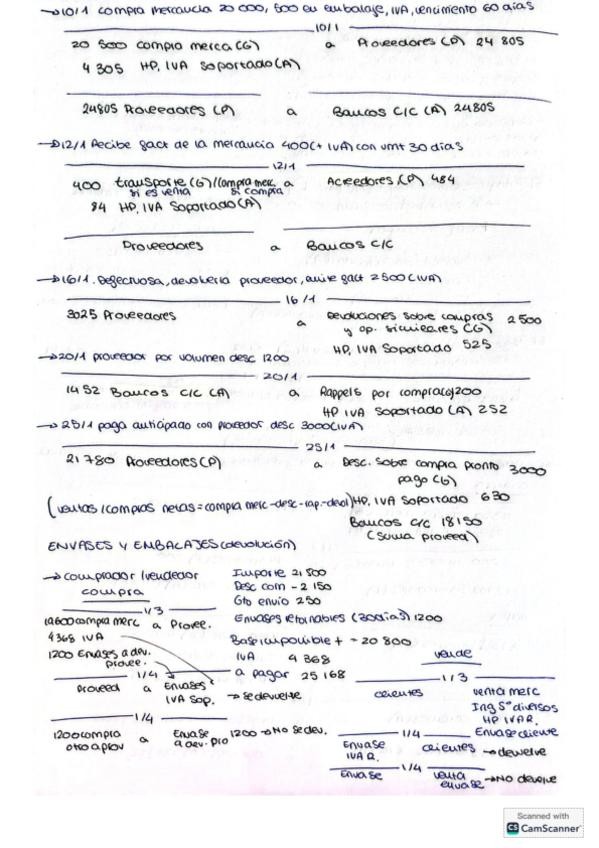 →10/1 compra mercancía 20 000, 500 en embalaje, IVA, vencimiento 60 días
10/1
20 500 compra merca (G) a Proveedores (P) 24 805
4 305 HP, IVA Soportado (A)
24805 Proveedores (P) a Bancos C/C (A) 24805
→12/1 Recibe fact de la mercancía 400 (+ IVA) con vmt 30 días
12/1
400 transporte (G)/compra merc a Acreedores (P) 484
si es venta si compra
84 HP, IVA Soportado (A)
Proveedores a Bancos C/C
→16/1. Defectuosa, devolver a proveedor, emite fact 2500 (IVA)
16/1
3025 Proveedores a Devoluciones sobre compras 2500
y op. similares (G)
HP, IVA Soportado 525
→20/1 proveedor por volumen desc 1200
20/1
1452 Bancos C/C (A) a Rappels por compra(G)1200
HP IVA Soportado (A) 252
→25/1 paga anticipado con proveedor desc 3000 (IVA)
25/1
21 780 Proveedores (P) a Desc. Sobre compra pronto 3000
pago (G)
(ventas/compras netas = compra merc-desc-rap.-devol) HP, IVA Soportado 630
Bancos C/C 18150
(Suma proveed)
ENVASES Y EMBALAJES (devolución)
→ comprador/vendedor Importe 21 800
compra Desc com - 2 150
1/3 Gto envio 250
19600 compra merc a Provee. Envases retornables (30días) 1200
4368 IVA Base imponible + - 20 800
1200 Envases a dev. provee. IVA 4 368 vende
1/4 a pagar 25 168 1/3
Proveed a Envases IVA Sop. → se devuelve clientes venta merc
Ing Sº diversos
HP IVA R.
1/4 1/4 Envase cliente
1200 compra otro aprov a Envase a dev. pro 1200 → No se dev. Envase IVA R. clientes → devuelve
1/4
Envase venta envase → NO devuelve
Scanned with
CS CamScanner